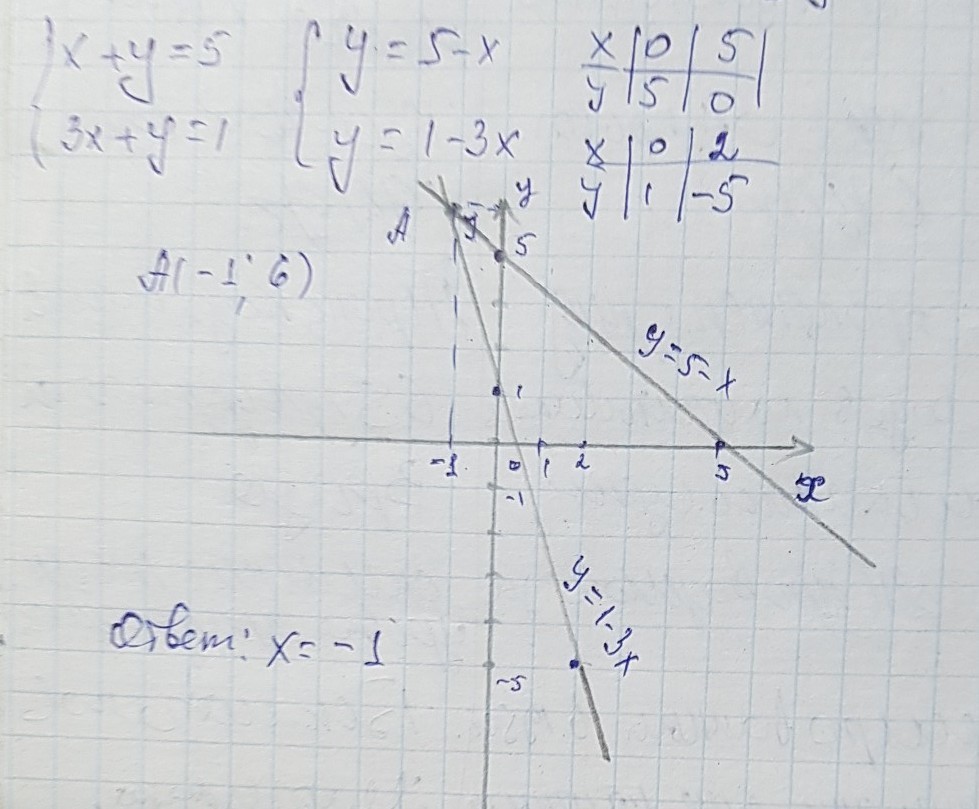 {x + y = 5
{3x + y = 1
{y = 5 - x
{y = 1 - 3x
x | 0 | 5 |
y | 5 | 0 |
x | 0 | 2
y | 1 | -5
A
y
5
A(-1; 6)
y = 5 - x
1
-1 0 1 2 5
x
-1
y = 1 - 3x
-5
Ответ: x = -1